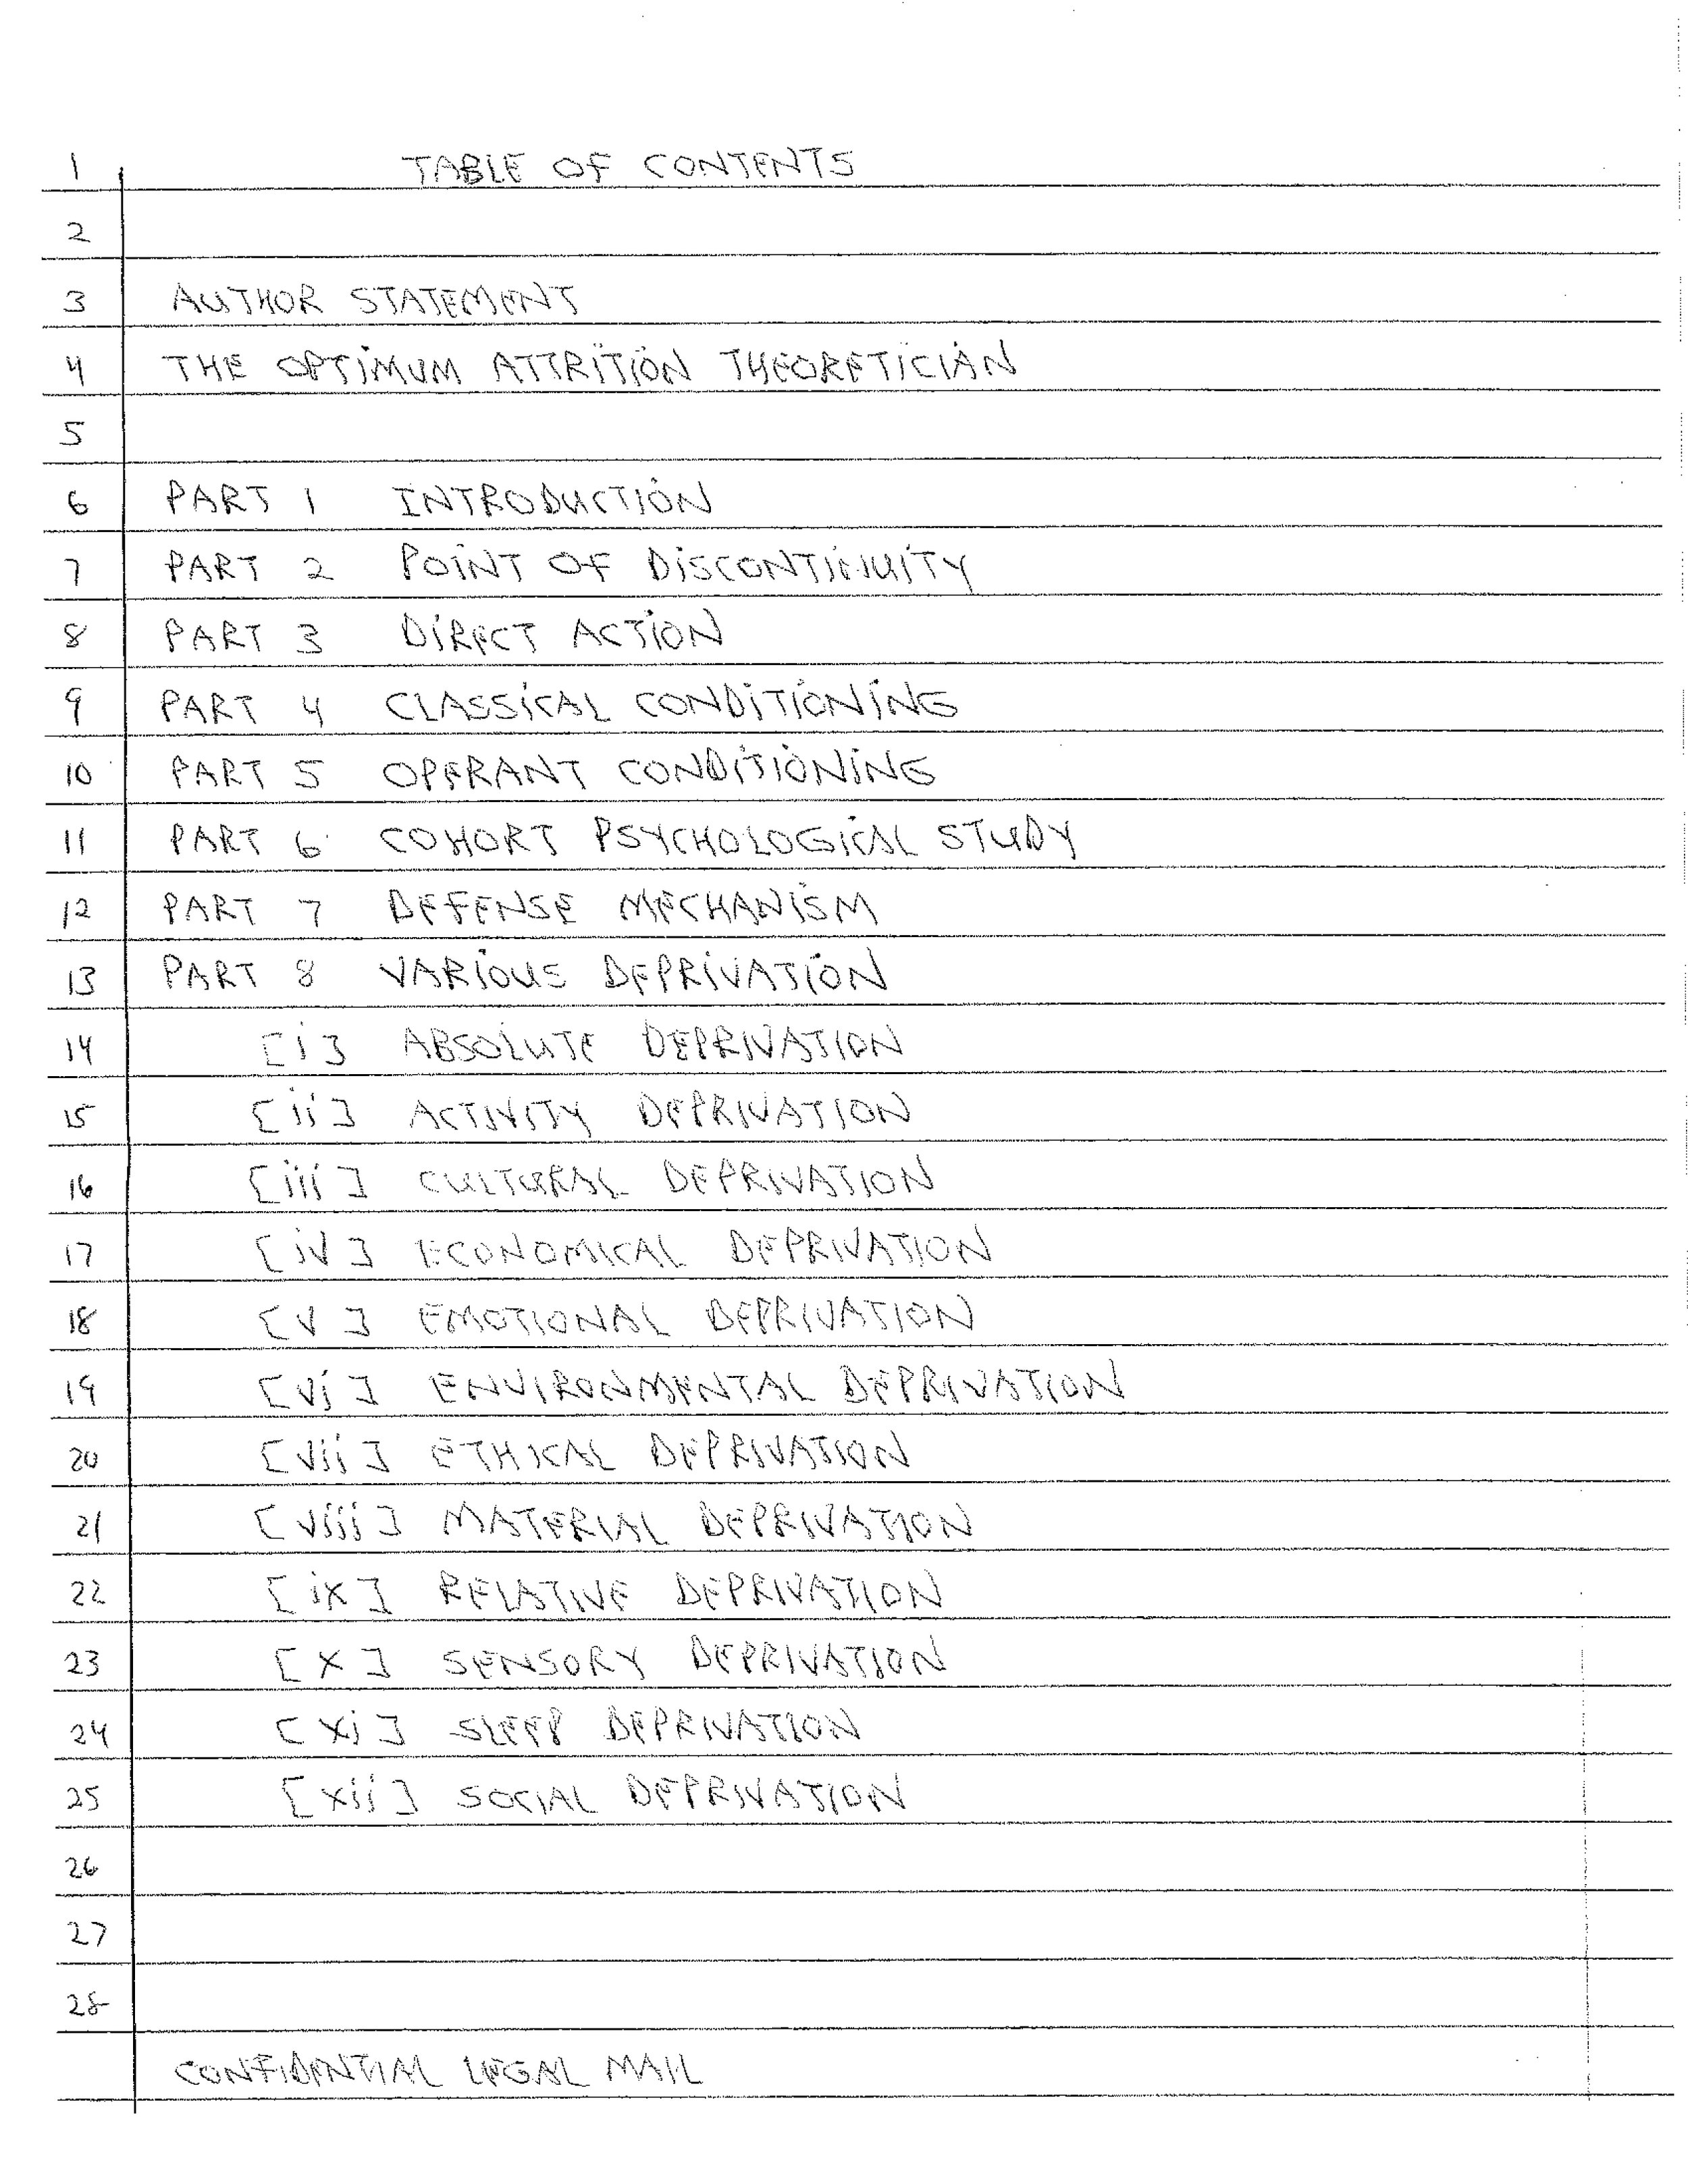 1 TABLE OF CONTENTS
2
3 AUTHOR STATEMENT
4 THE OPTIMUM ATTRITION THEORETICIAN
5
6 PART 1 INTRODUCTION
7 PART 2 POINT OF DISCONTINUITY
8 PART 3 DIRECT ACTION
9 PART 4 CLASSICAL CONDITIONING
10 PART 5 OPERANT CONDITIONING
11 PART 6 COHORT PSYCHOLOGICAL STUDY
12 PART 7 DEFENSE MECHANISM
13 PART 8 VARIOUS DEPRIVATION
14 [i] ABSOLUTE DEPRIVATION
15 [ii] ACTIVITY DEPRIVATION
16 [iii] CULTURAL DEPRIVATION
17 [iv] ECONOMICAL DEPRIVATION
18 [v] EMOTIONAL DEPRIVATION
19 [vi] ENVIRONMENTAL DEPRIVATION
20 [vii] ETHICAL DEPRIVATION
21 [viii] MATERIAL DEPRIVATION
22 [ix] RELATIVE DEPRIVATION
23 [x] SENSORY DEPRIVATION
24 [xi] SLEEP DEPRIVATION
25 [xii] SOCIAL DEPRIVATION
26
27
28
CONFIDENTIAL LEGAL MAIL